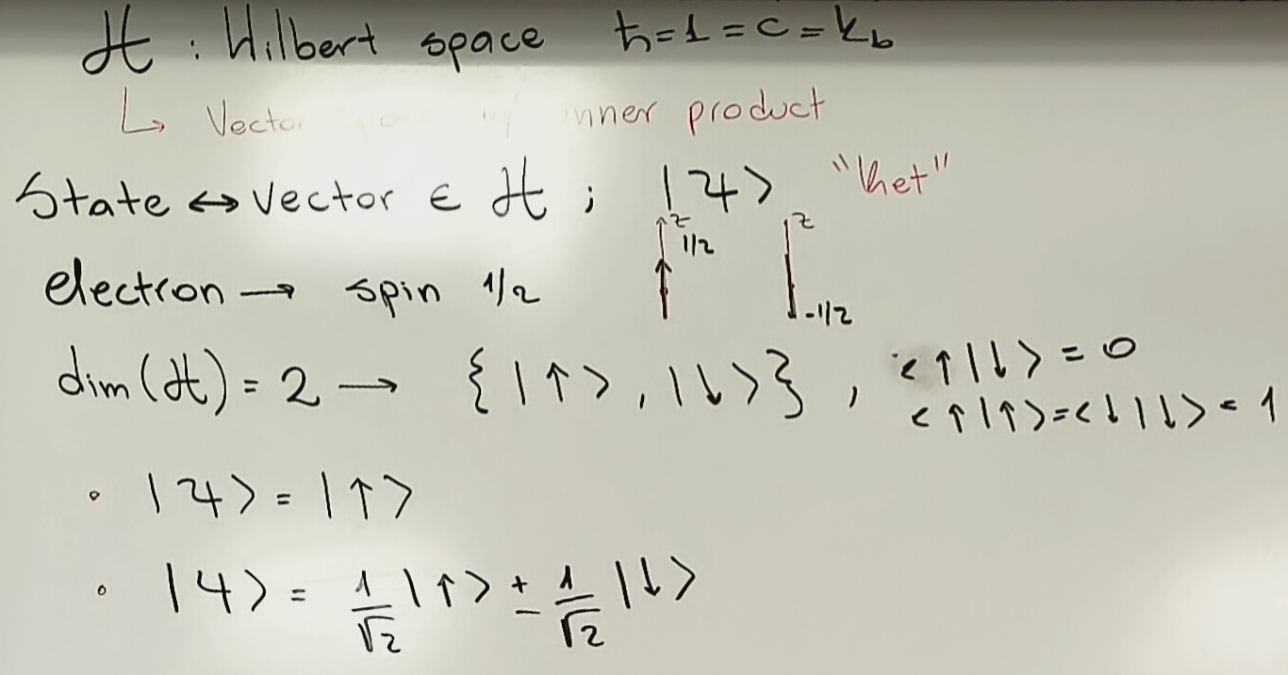 ℋ : Hilbert space ħ=1=c=k_b
↳ Vector inner product
State ↔ vector ∈ ℋ ; |ψ> "ket"
z 1/2 z -1/2
electron → spin 1/2
dim(ℋ) = 2 → {|↑>, |↓>} , <↑|↓> = 0
<↑|↑>=<↓|↓> = 1
• |ψ> = |↑>
• |ψ> = 1/√2 |↑> ± 1/√2 |↓>